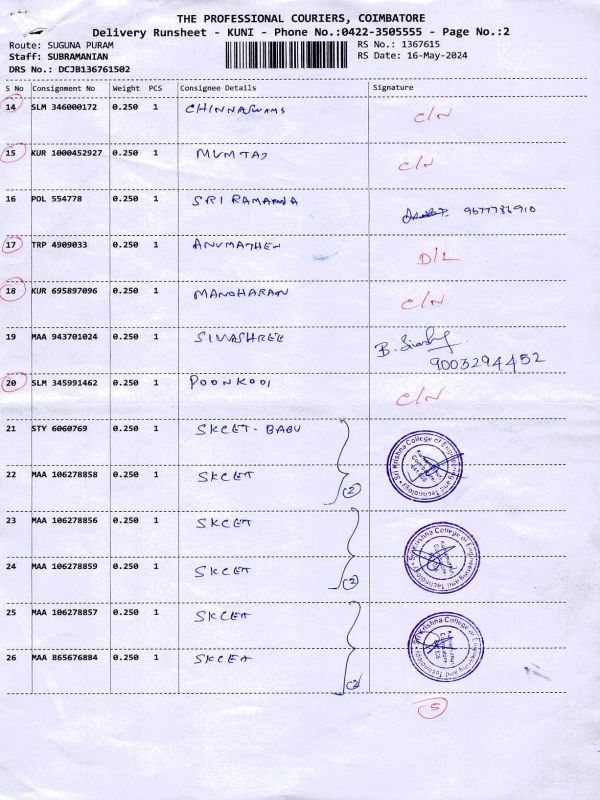 THE PROFESSIONAL COURIERS, COIMBATORE
Delivery Runsheet - KUNI - Phone No.:0422-3505555 - Page No.:2
Route: SUGUNA PURAM RS No.: 1367615
Staff: SUBRAMANIAN RS Date: 16-May-2024
DRS No.: DCJB136761502
S No Consignment No Weight PCS Consignee Details Signature
14 SLM 346000172 0.250 1 CHINNASWAMS C/N
15 KUR 1000452927 0.250 1 MUMTAJ C/N
16 POL 554778 0.250 1 SRI RAMANA 9677786910
17 TRP 4909033 0.250 1 ANUMATHEW D/L
18 KUR 695897096 0.250 1 MANOHARAN C/N
19 MAA 943701024 0.250 1 SIVASHREE B. 9003294452
20 SLM 345991462 0.250 1 POONKODI C/N
21 STY 6060769 0.250 1 SKCET - BABU
22 MAA 106278858 0.250 1 SKCET (2) Sri Krishna College of Engineering and Technology
23 MAA 106278856 0.250 1 SKCET
24 MAA 106278859 0.250 1 SKCET (2) Sri Krishna College of Engineering and Technology
25 MAA 106278857 0.250 1 SKCET
26 MAA 865676884 0.250 1 SKCET (2) Sri Krishna College of Engineering and Technology
5